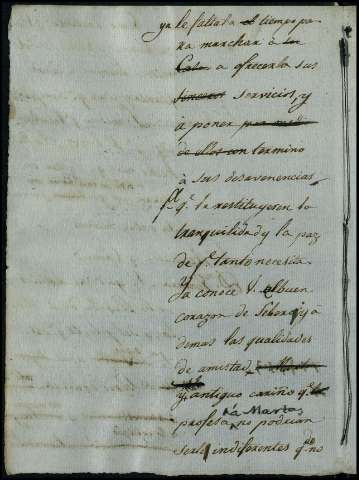 ya le faltaba el tiempo pa
ra marchar a los
Casa a ofrecerla sus
servicios, y
a poner por medi
de ellos con termino
a sus desavenencias,
pª qe la restituyeren la
tranquilidad y la paz
de qe tanto necesita.
Ya conoce V. el buen
corazon de Siberi, y a
demas las qualidades
de amistad,
y antiguo cariño qe le
profesa, a Marta
no podrian
serle indiferentes qdo no